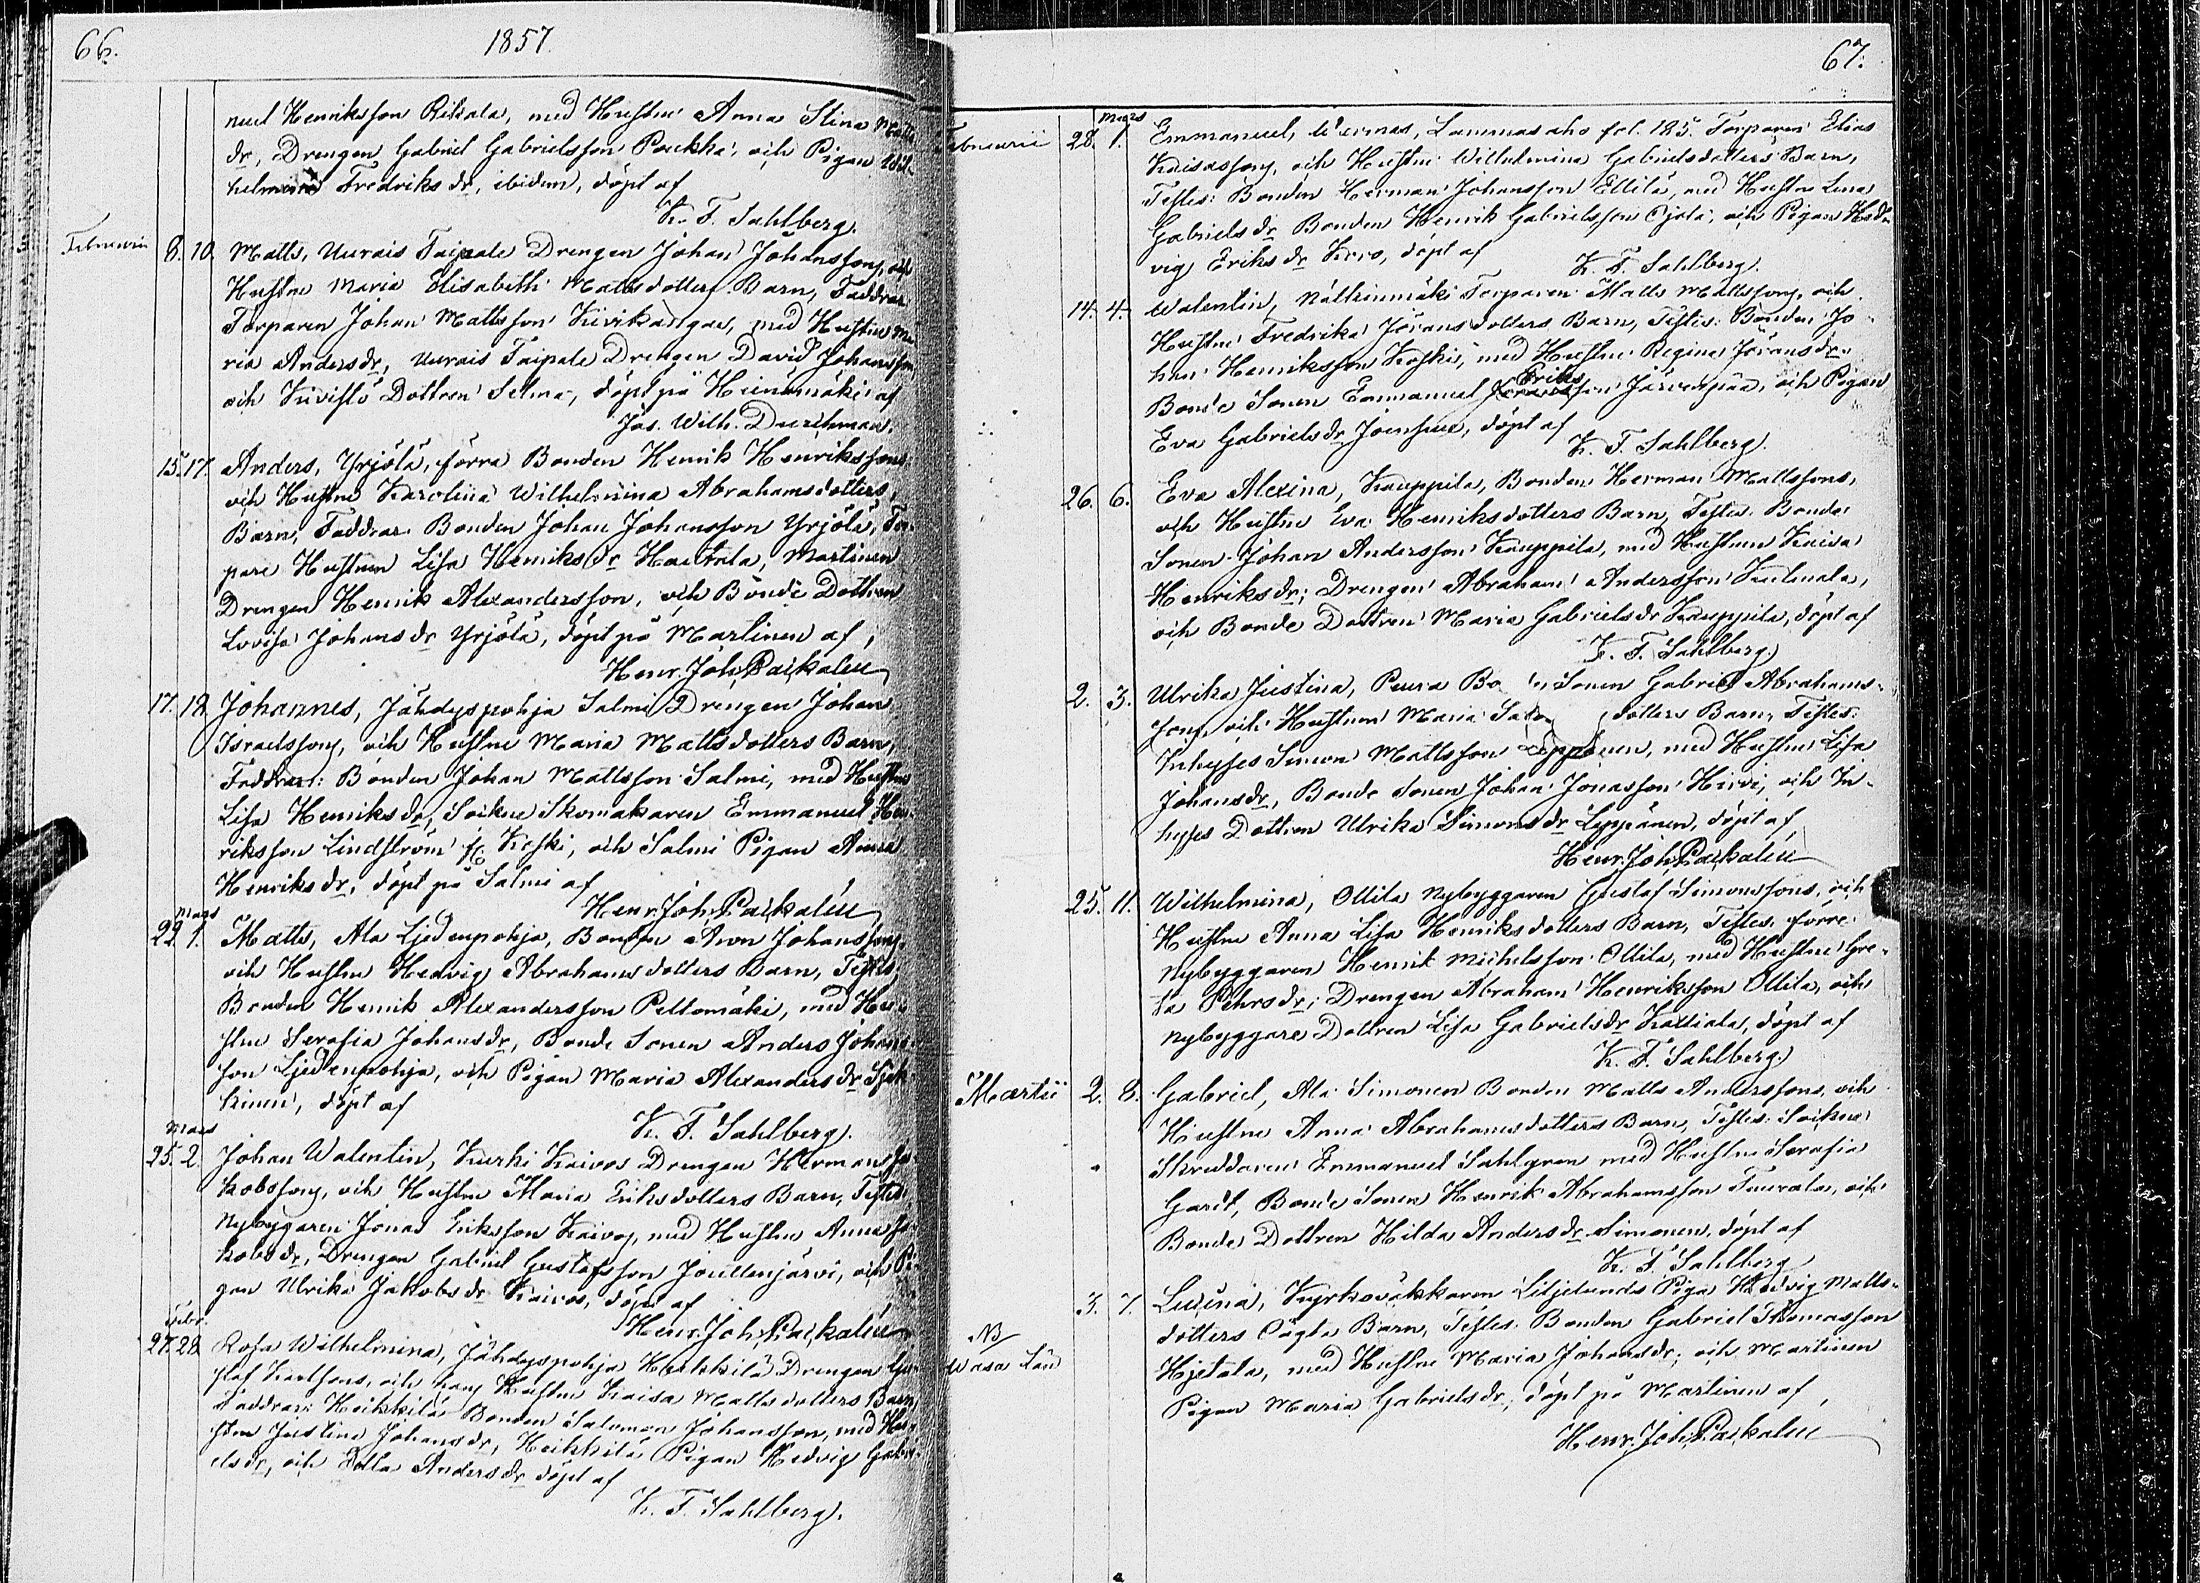 66.
1857.
nuel Henriksson Rikala, med Hustru Anna Stina Matts
dr, Drengen Gabriel Gabrielsson Poukka, och Pigan Wil-
helmina Fredriks dr, ibidem, döpt af
K. F. Sahlberg.
Februarii 8. 10. Matts, Uurais Taipale Drengen Johan Johanssons, och
Hustru Maria Elisabeth Mattsdotters Barn, Faddrar:
Torparen Johan Mattsson Kivikangas, med Hustru Ma
ria Anders dr, Uurais Taipale Drengen David Johansson,
och Kivistö Dottren Selma, döpt på Heinämäki af
Jos. Wilh. Durchman.
15. 17. Anders, Yrjölä, förra Bonden Henrik Henrikssons,
och Hustru Karolina Wilhelmina Abrahamsdotters,
Barn, Faddrar: Bonden Johan Johansson Yrjölä, Tor-
pare Hustrun Lisa Henriks dr, Martinen
Drengen Henrik Alexandersson, och Bonde Dottren
Lovisa Johans dr Yrjölä, döpt på Martinen af,
Henr. Joh. Paukalin
17. 18. Johannes, Jähdyspohja Salmi Drengen Johan
Israelssons, och Hustru Maria Mattsdotters Barn,
Faddrar: Bonden Johan Mattsson Salmi, med Hustru
Lisa Henriks dr, Sockne Skomakaren Emmanuel Hen-
riksson Lindström fr. Koski, och Salmi Pigan Anna
Henriks dr, döpt på Salmi af
Henr. Joh. Paukalin
Mars
22. 1. Matts, Ala Ljedenpohja, Bonden Aron Johanssons
och Hustru Hedvig Abrahamsdotters Barn, Testes:
Bonden Henrik Alexandersson Peltomäki, med Hu-
stru Serafia Johans dr, Bonde Sonen Anders Johans
son Ljedenpohja, och Pigan Maria Alexanders dr
kinen, döpt af
K. F. Sahlberg.
Mars
25. 2. Johan Walentin, Kurki Kaivos Drengen Herman Ja
kobssons, och Hustru Maria Eriksdotters Barn, Testes:
Nybyggaren Jonas Eriksson Kaivos, med Hustru Anna Ja
kobs dr, Drengen Gabriel Gustafsson Jouttenjärvi, och Pi
gan Ulrika Jakobs dr Kaivos, döpt af
Henr. Joh. Paukalin
Febr.
27. 28. Rosa Wilhelmina, Jähdyspohja Heikkilä Drengen Gu
staf Karlssons, och hans Hustru Kaisa Mattsdotters Barn,
Faddrar: Heikkilä Bonden Salomon Johansson, med Hu
stru Justina Johans dr, Heikkilä Pigan Hedvig Gabri
els dr, och Anders dr döpt af
K. F. Sahlberg.
67.
Mars
Februarii 28. 1. Emmanuel, Lammasaho fol. 185. Torparen Elias
Kaisassons, och Hustru Wilhelmina Gabrielsdotters Barn,
Testes: Bonden Herman Johansson Ellilä, med Hustru Lena
Gabriels dr Bonden Henrik Gabrielsson Ojala, och Pigan Hed-
vig Eriks dr, döpt af
K. F. Sahlberg.
14. 4. Walentin, Torparen Matts Mattssons, och
Hustru Fredrika Göransdotters Barn, Testes: Bonden Jo-
han Henriksson Koski, med Hustru Regina Görans dr,
Bonde Sonen Emmanuel Eriksson Järvenpää, och Pigan
Eva Gabriels dr, döpt af
K. F. Sahlberg.
26. 6. Eva Alexina, Kauppila, Bonden Herman Mattssons,
och Hustru Eva Henriksdotters Barn, Testes: Bonde
Sonen Johan Andersson Kauppila, med Hustrun Kaisa
Henriks dr; Drengen Abraham Andersson,
och Bonde Dottren Maria Gabriels dr Kauppila, döpt af
K. F. Sahlberg.
2. 3. Ulrika Justina, Peura Bo Sonen Gabriel Abrahams-
sons, och Hustrun Maria dotters Barn, Testes:
Inhyses Simon Mattsson Leppänen, med Hustru Lisa
Johans dr, Bonde Sonen Johan Jonasson Hirvi, och In-
hyses Dottren Ulrika Simons dr Leppänen, döpt af
Henr. Joh. Paukalin
25. 11. Wilhelmina, Ollila Nybyggaren Gustaf Simonssons, och
Hustru Anna Lisa Henriksdotters Barn, Testes: förre
Nybyggaren Henrik Michelsson Ollila, med Hustru Gre-
ta Pehrs dr; Drengen Abraham Henriksson Ollila, och
Nybyggare Dottren Lisa Gabriels dr, döpt af
K. F. Sahlberg.
Martii 2. 8. Gabriel, Ala Simonen Bonden Matts Anderssons, och
Hustru Anna Abrahamsdotters Barn, Testes: Sockne
Skreddaren Emmanuel Sahlgren med Hustru Serafia
Gardt, Bonde Sonen Henrik Abrahamsson, och
Bonde Dottren Hilda Anders dr Simonen, döpt af
K. F. Sahlberg
3. 7. Kyrkoväkkaren Liljelunds Piga Hedvig Matts-
dotters Oägta Barn, Testes: Bonden Gabriel Thomasson
Hjetala, med Hustru Maria Johans dr; och Martinen
Pigan Maria Gabriels dr, döpt på Martinen af,
Henr. Joh. Paukalin
NB
Wasa Län